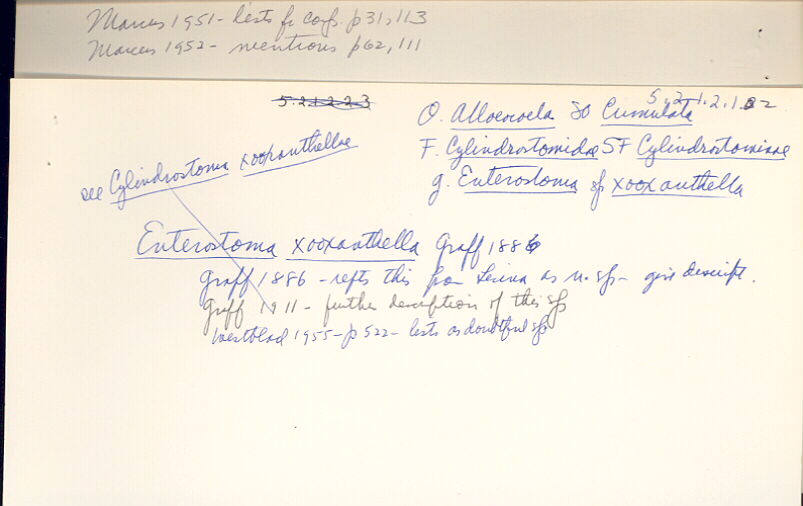 Marcus 1951 - lists fr conf. p31, 113
Marcus 1952 - mentions p62, 111
5.2.1.2.2.3
5.2.1.2.1.2
O. Alloeocoela SO Cumulata
F. Cylindrostomidae SF Cylindrostominae
g. Enterostoma sp xooxanthella
see Cylindrostoma xooxanthellae
Enterostoma xooxanthella Graff 1886
Graff 1886 - repts this from Lesina as n. sp - give descript.
Graff 1911 - further description of this sp
Westblad 1955 - p522 - lists as doubtful sp